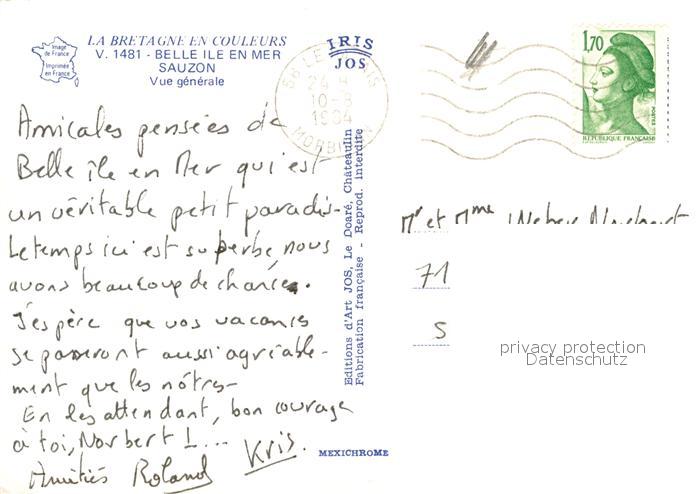 Image
de France
Imprimée
en France
LA BRETAGNE EN COULEURS
V. 1481 - BELLE ILE EN MER
SAUZON
Vue générale
IRIS
JOS
56 LE PALAIS
24 H
10-8
1984
MORBIHAN
1,70
POSTES
REPUBLIQUE FRANÇAISE
Amicales pensées de
Belle île en Mer qui est
un véritable petit paradis-
Le temps ici est superbe, nous
avons beaucoup de chance.
J'espère que vos vacances
se passeront aussi agréable-
ment que les nôtres-
En les attendant, bon courage
à toi, Norbert !...
Amitiés Roland Kris.
Editions d'Art JOS, Le Doaré, Châteaulin
Fabrication française - Reprod. interdite
MEXICHROME
Mr et Mme Weber Norbert
71
S
privacy protection
Datenschutz